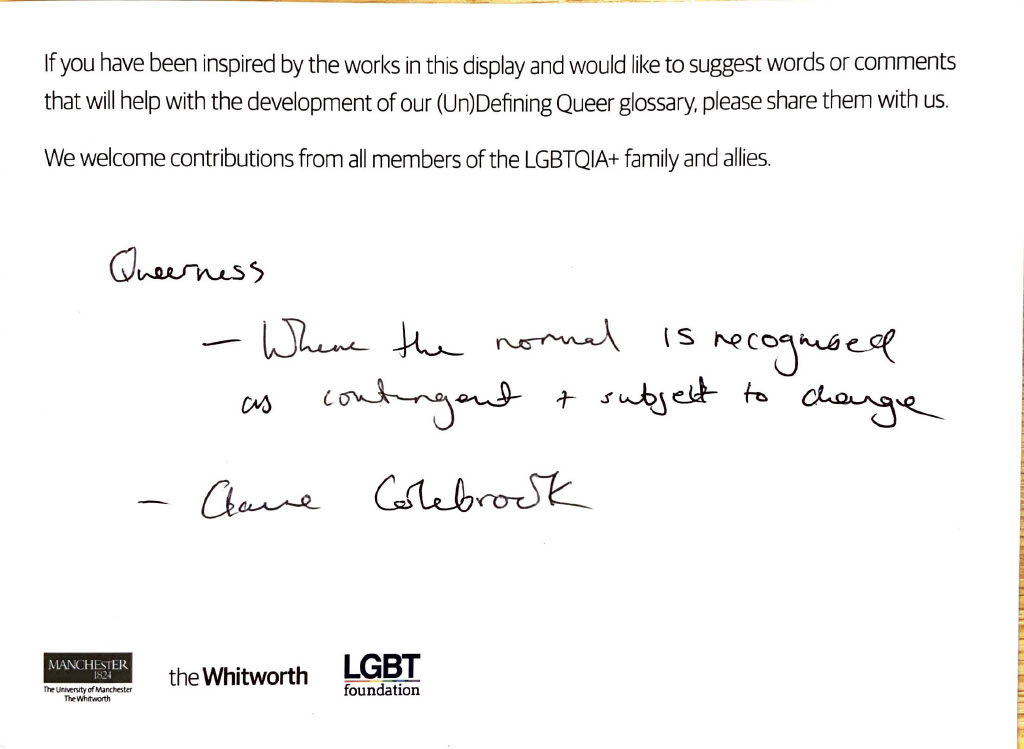 If you have been inspired by the works in this display and would like to suggest words or comments
that will help with the development of our (Un)Defining Queer glossary, please share them with us.
We welcome contributions from all members of the LGBTQIA+ family and allies.
Queerness
- Where the normal is recognised
as contingent + subject to change
- Claire Colebrook
MANCHESTER
1824
The University of Manchester
The Whitworth
the Whitworth
LGBT
foundation